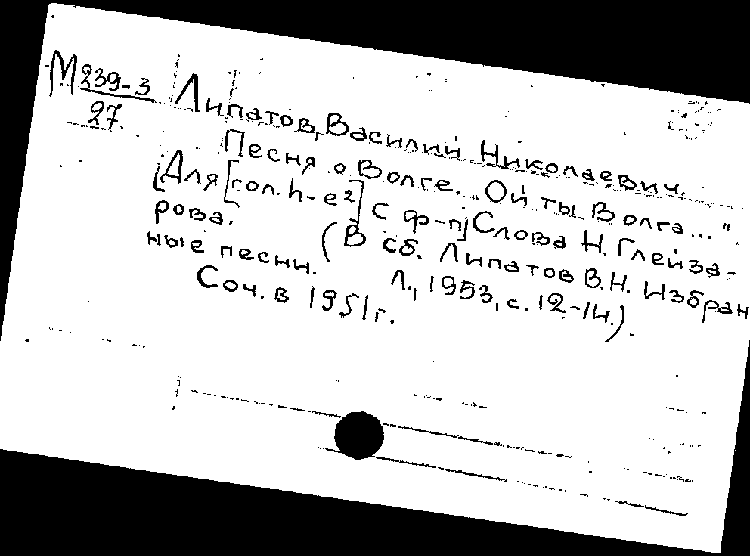 М 239-3
27
Липатов, Василий Николаевич.
Песня о Волге. „Ой ты Волга..."
[Для [гол. h-e²] с ф-п] Слова Н. Глейза-
рова.
(В сб. Липатов В.Н. Избран
ные песни. Л., 1953, с. 12-14).
Соч. в 1951 г.